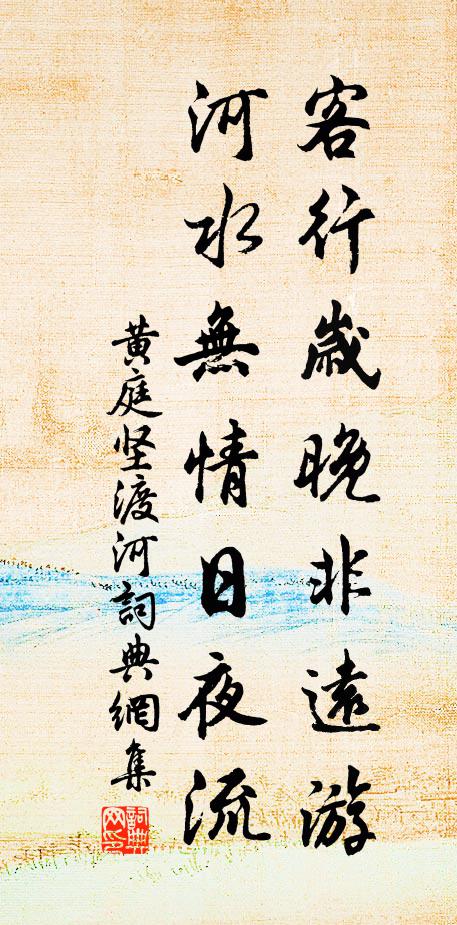 客行歲晚非遠游
河水無情日夜流
黃庭坚渡河詞典網集
詞典網印